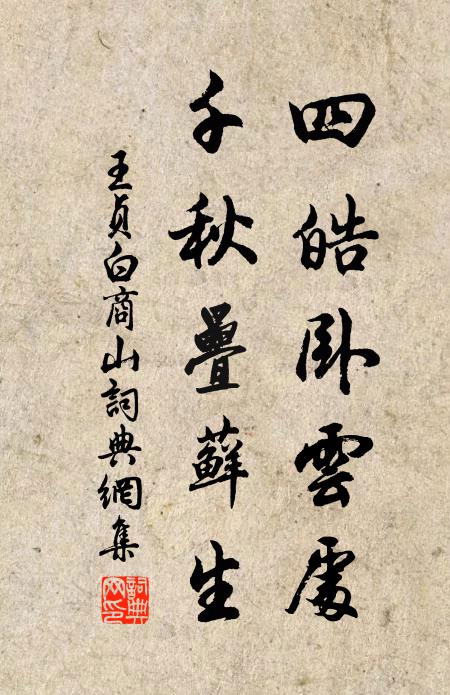 四皓卧雲處
千秋疊蘚生
王貞白商山詞典網集
詞典網印